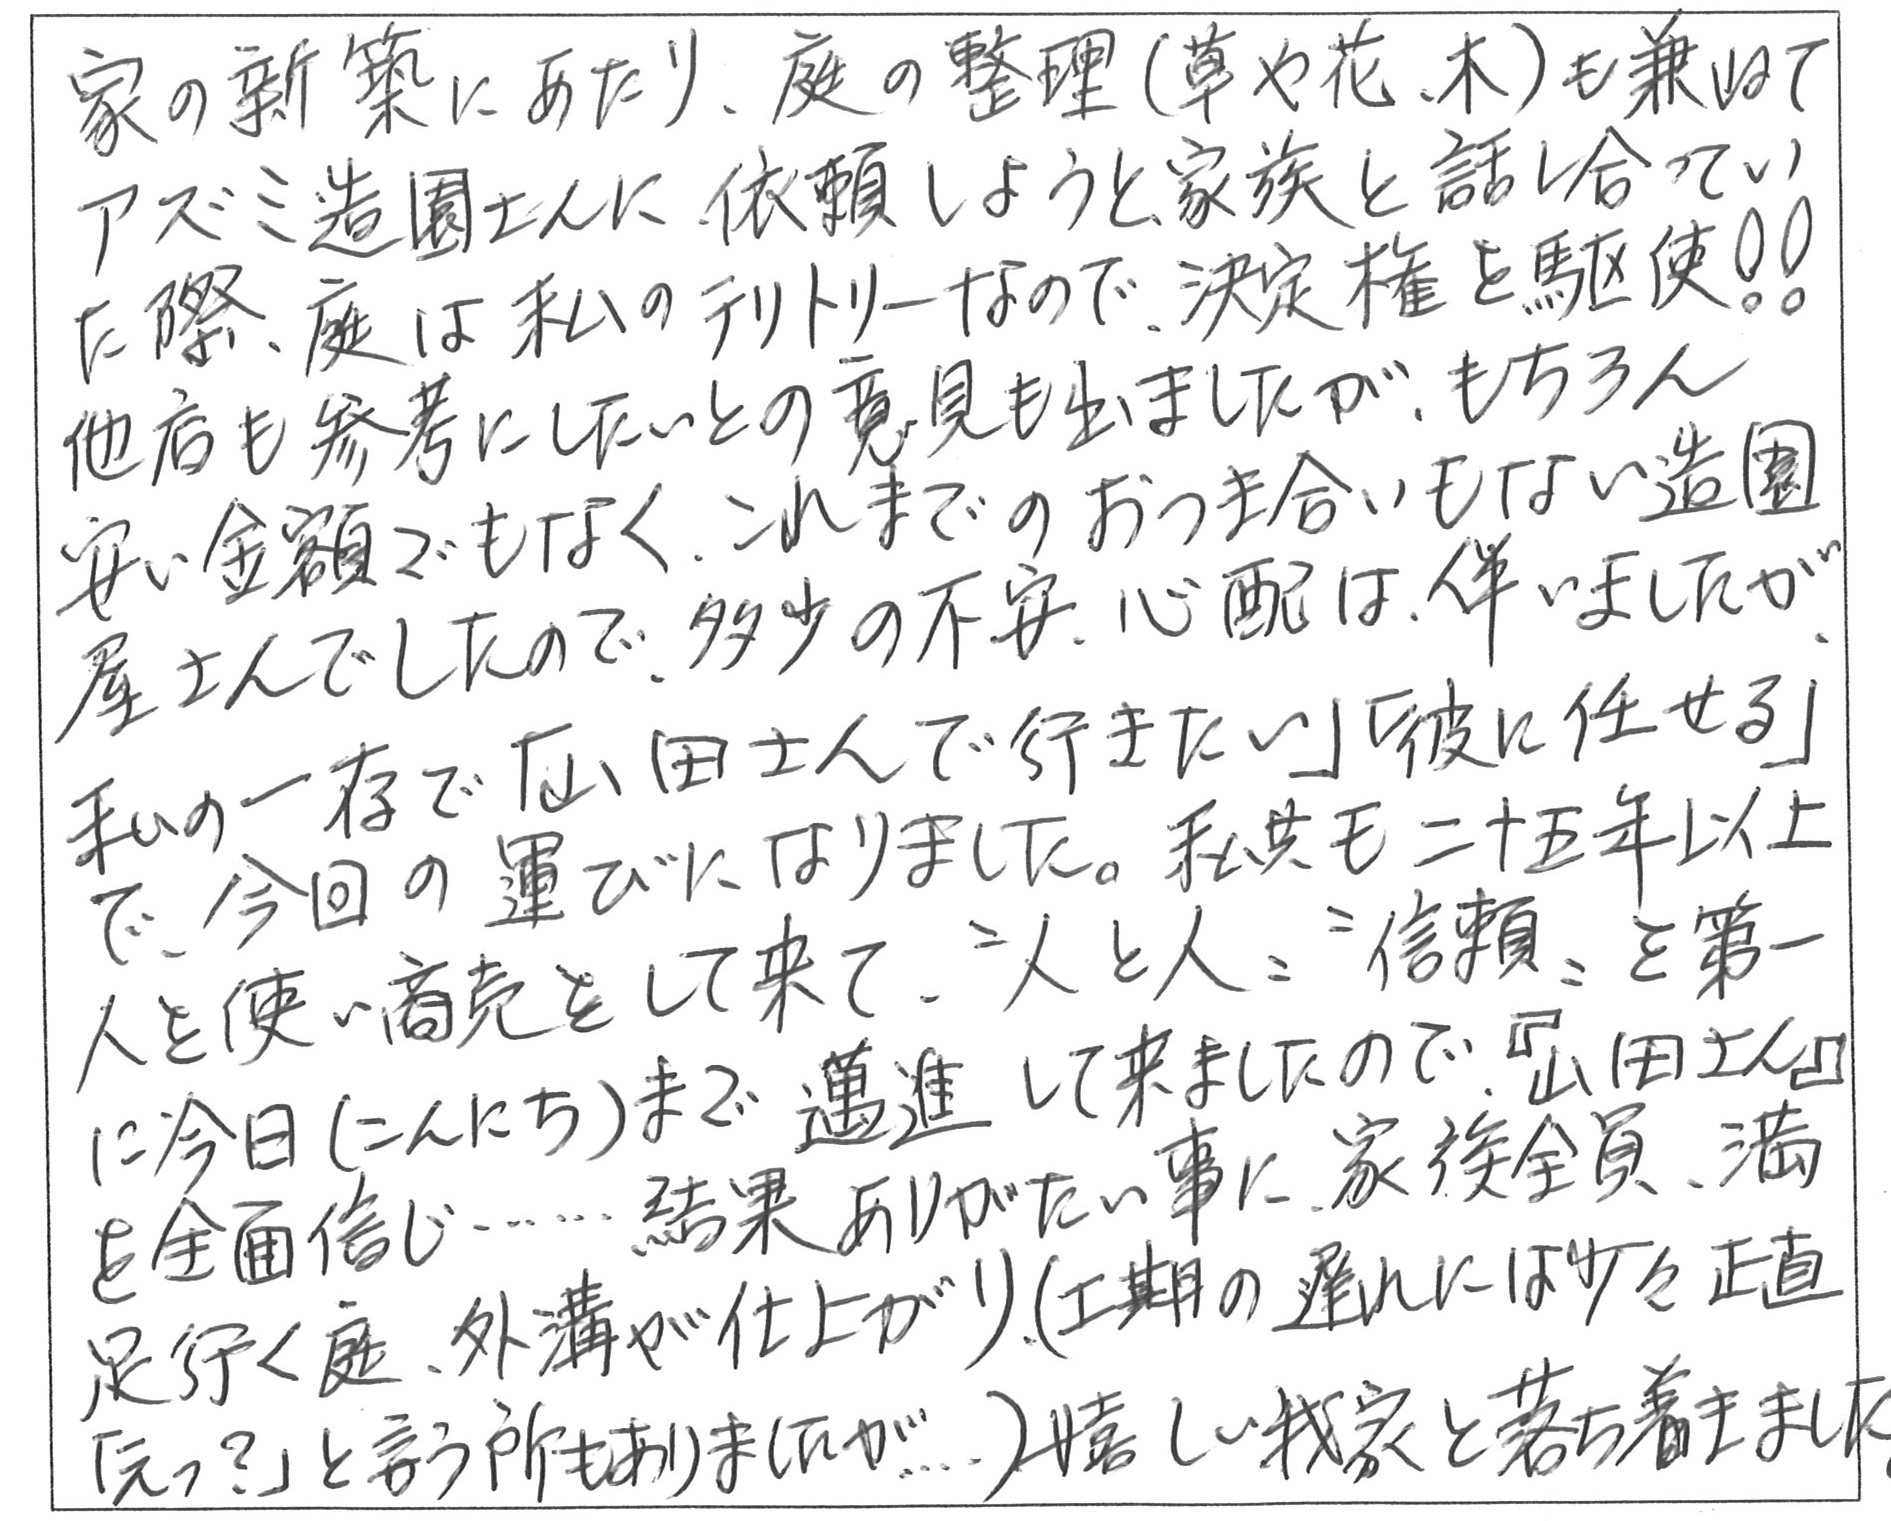 家の新築にあたり、庭の整理(草や花、木)も兼ねて
アズミ造園さんに依頼しようと、家族と話し合ってい
た際、庭は私のテリトリーなので、決定権を駆使!!
他店も参考にしたいとの意見も出ましたが、もちろん
安い金額でもなく、これまでのおつき合いもない造園
屋さんでしたので、多少の不安、心配は、伴いましたが、
私の一存で「山田さんで行きたい」「彼に任せる」
で、今回の運びになりました。私共も二十五年以上
人を使い商売をして来て、〝人と人〟〝信頼〟を第一
に今日(こんにち)まで邁進して来ましたので、『山田さん』
を全面信じ……結果ありがたい事に、家族全員、満
足行く庭、外溝が仕上がり、(工期の遅れには少々正直
「えっ?」と言う所もありましたが……)嬉しい我家と落ち着きました。